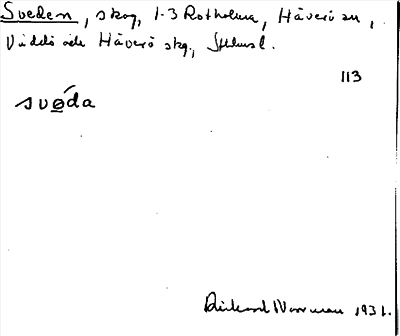 Sveden, skog, 1-3 Rotholma, Häverö sn,
Väddö och Häverö skg, Sthlms l.
113
svǿda
Rickard Norrman 1931.